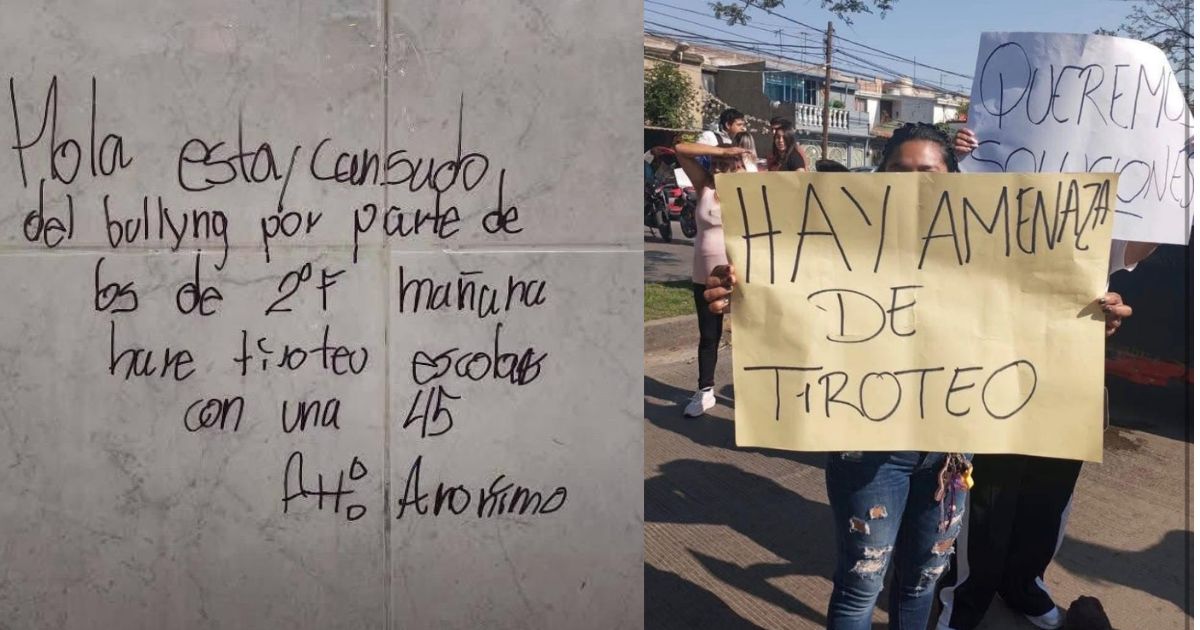 Hola esta/cansado
del bullyng por parte de
los de 2°F mañana
hare tiroteo escolar
con una 45
Att: Anonimo
QUEREMOS
SOLUCIONES
HAY AMENAZA
DE
TIROTEO